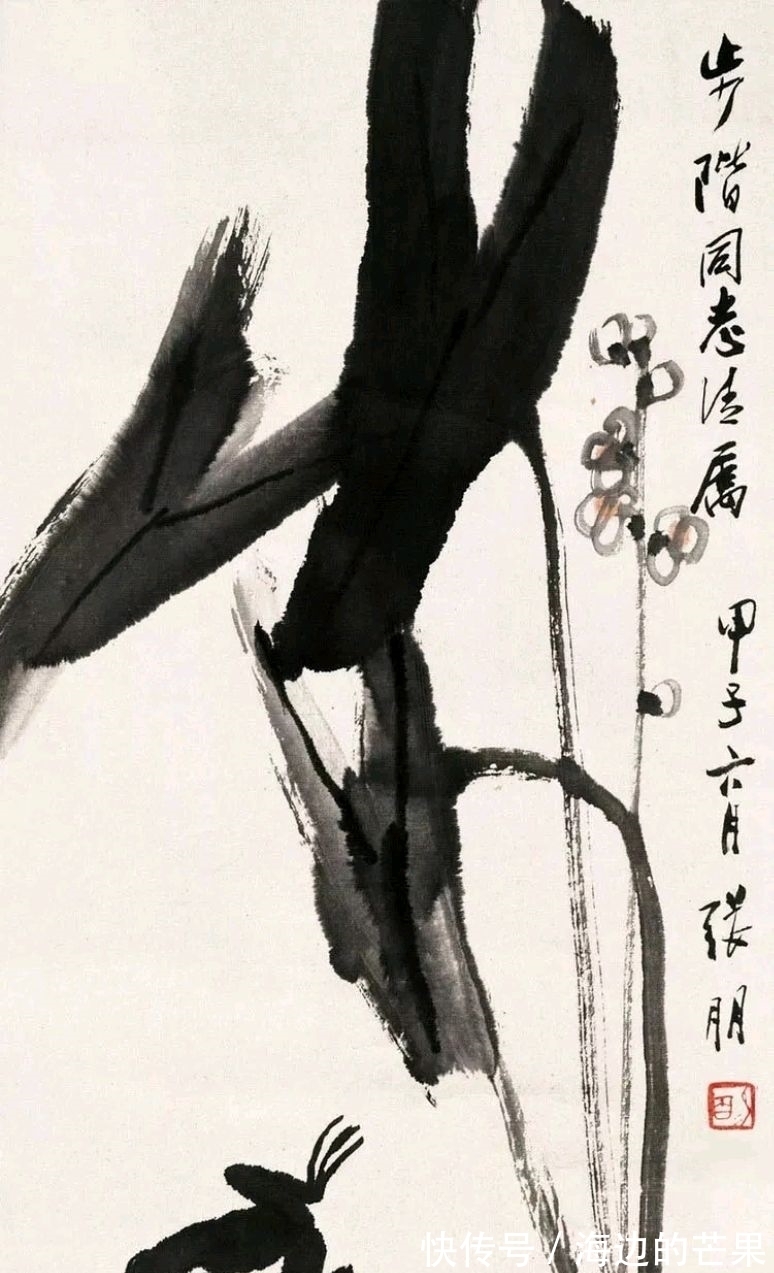 步阶同志清属
甲子六月
张朋
快传号/海边的芒果